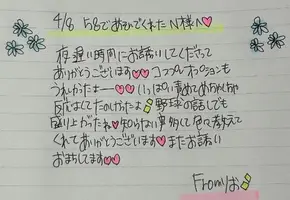 4/8 58であそびてくれたN様へ♡
夜遅い時間にお誘いしてくださって
ありがとうございます♡♡コスプレオプションも
うれかったよーー♡♡いっぱい責めてあちんちゃ
反応よくてたのしかったよ 野球の話しでも
盛り上がったね♡知らない事多くて色々教えて
くれてありがとうございます♡またお誘い
おまちしてます♡♡
Fromりお